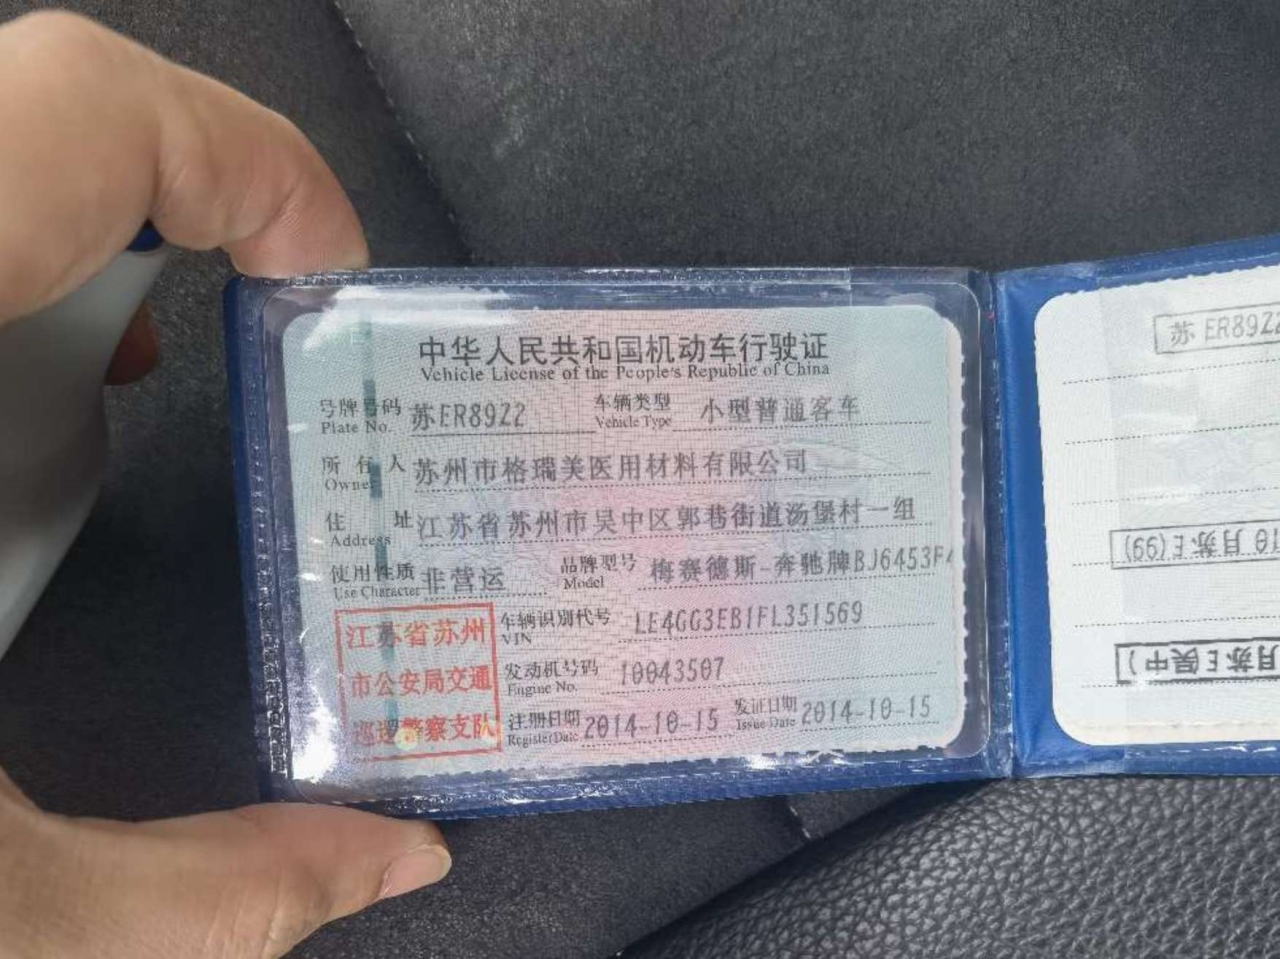 中华人民共和国机动车行驶证
Vehicle License of the People's Republic of China
号牌号码 苏ER89Z2 车辆类型 小型普通客车
Plate No. Vehicle Type
所有人 苏州市格瑞美医用材料有限公司
Owner
住址 江苏省苏州市吴中区郭巷街道汤堡村一组
Address
使用性质 非营运 品牌型号 梅赛德斯-奔驰牌BJ6453F
Use Character Model
江苏省苏州
市公安局交通
巡逻警察支队
车辆识别代号 LE4GG3EB1FL351569
VIN
发动机号码 10043507
Engine No.
注册日期 2014-10-15 发证日期 2014-10-15
Register Date Issue Date
苏ER89Z
月苏E(99)
月苏E(吴中)